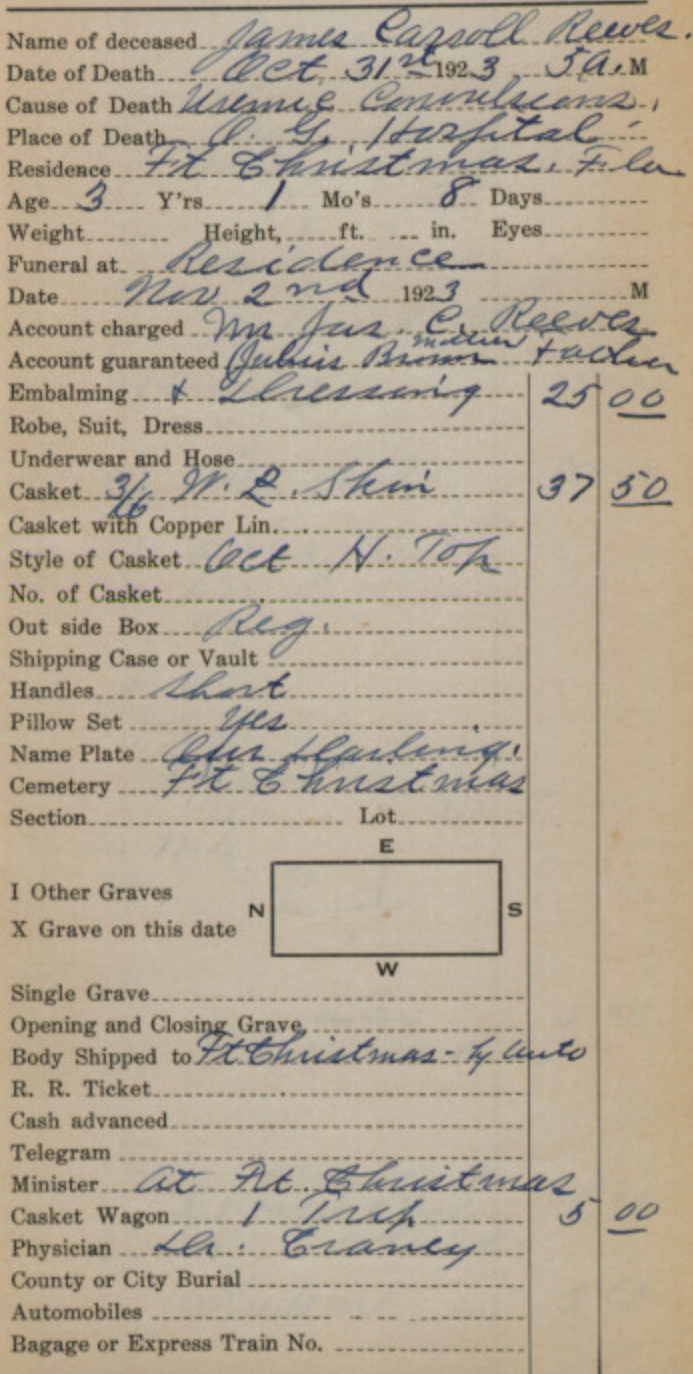 Name of deceased James Carroll Reeves.
Date of Death Oct 31st 1923 5 A. M
Cause of Death Uremic Convulsions.
Place of Death O. G. Hospital
Residence Ft Christmas. Fla
Age 3 Y'rs 1 Mo's 8 Days
Weight Height, ft. in. Eyes
Funeral at Residence
Date Nov 2nd 1923 M
Account charged Mr Jas. C. Reeves
Account guaranteed Julius Brown mother father
Embalming & Dressing 25 00
Robe, Suit, Dress
Underwear and Hose
Casket 3/6 W. L. Skin 37 50
Casket with Copper Lin.
Style of Casket Oct H. Top
No. of Casket
Out side Box Reg.
Shipping Case or Vault
Handles Short
Pillow Set Yes
Name Plate Our Darling.
Cemetery Ft Christmas
Section Lot
E
I Other Graves
N S
X Grave on this date
W
Single Grave
Opening and Closing Grave
Body Shipped to Ft Christmas - by auto
R. R. Ticket
Cash advanced
Telegram
Minister at Ft. Christmas
Casket Wagon 1 Trip 5 00
Physician Dr.
County or City Burial
Automobiles
Bagage or Express Train No.